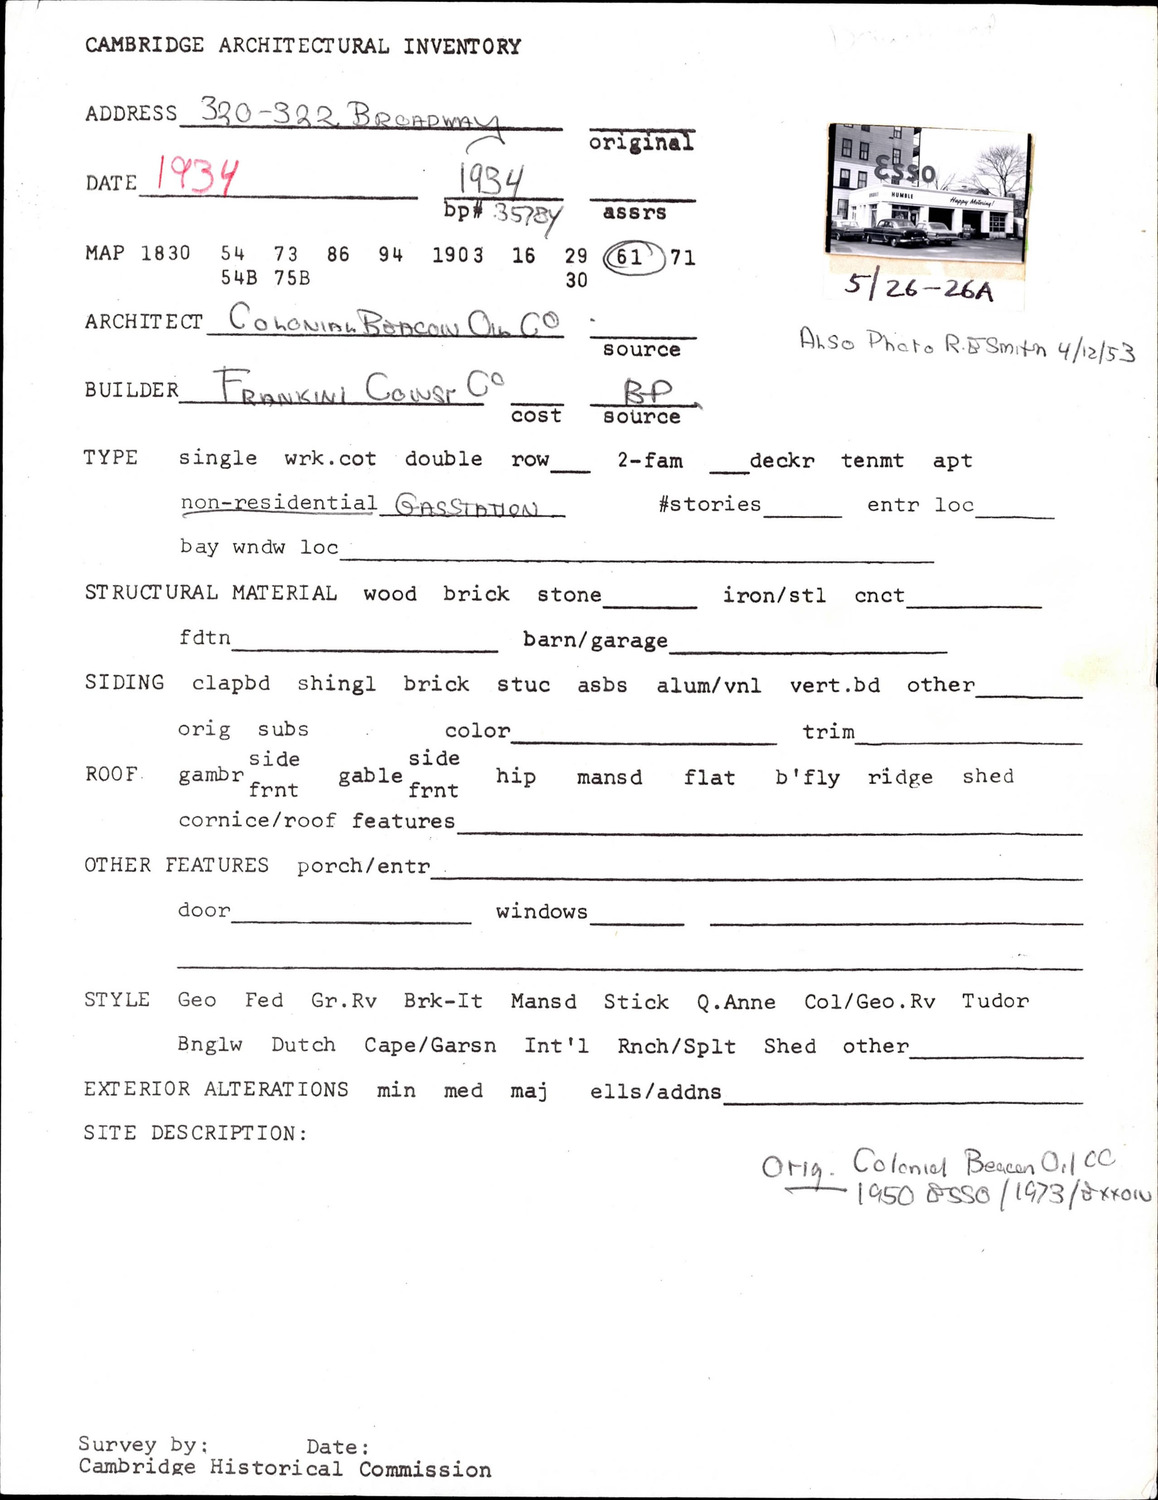 CAMBRIDGE ARCHITECTURAL INVENTORY
ADDRESS 320-322 BROADWAY
original
DATE 1934 1934
bp# 35784 assrs
MAP 1830 54 73 86 94 1903 16 29 61 71
54B 75B 30
ESSO
HUMBLE
Happy Motoring!
5/26-26A
Also Photo R.E Smith 4/12/53
ARCHITECT COLONIAL BEACON OIL CO
source
BUILDER FRANKINI CONST CO BP
cost source
TYPE single wrk.cot double row___ 2-fam ___deckr tenmt apt
non-residential GAS STATION #stories______ entr loc______
bay wndw loc______
STRUCTURAL MATERIAL wood brick stone______ iron/stl cnct______
fdtn______ barn/garage______
SIDING clapbd shingl brick stuc asbs alum/vnl vert.bd other______
orig subs color______ trim______
side side
ROOF gambr gable hip mansd flat b'fly ridge shed
frnt frnt
cornice/roof features______
OTHER FEATURES porch/entr______
door______ windows______
STYLE Geo Fed Gr.Rv Brk-It Mansd Stick Q.Anne Col/Geo.Rv Tudor
Bnglw Dutch Cape/Garsn Int'l Rnch/Splt Shed other______
EXTERIOR ALTERATIONS min med maj ells/addns______
SITE DESCRIPTION:
Orig. Colonial Beacon Oil CC
1950 ESSO/1973/Exxon
Survey by: Date:
Cambridge Historical Commission